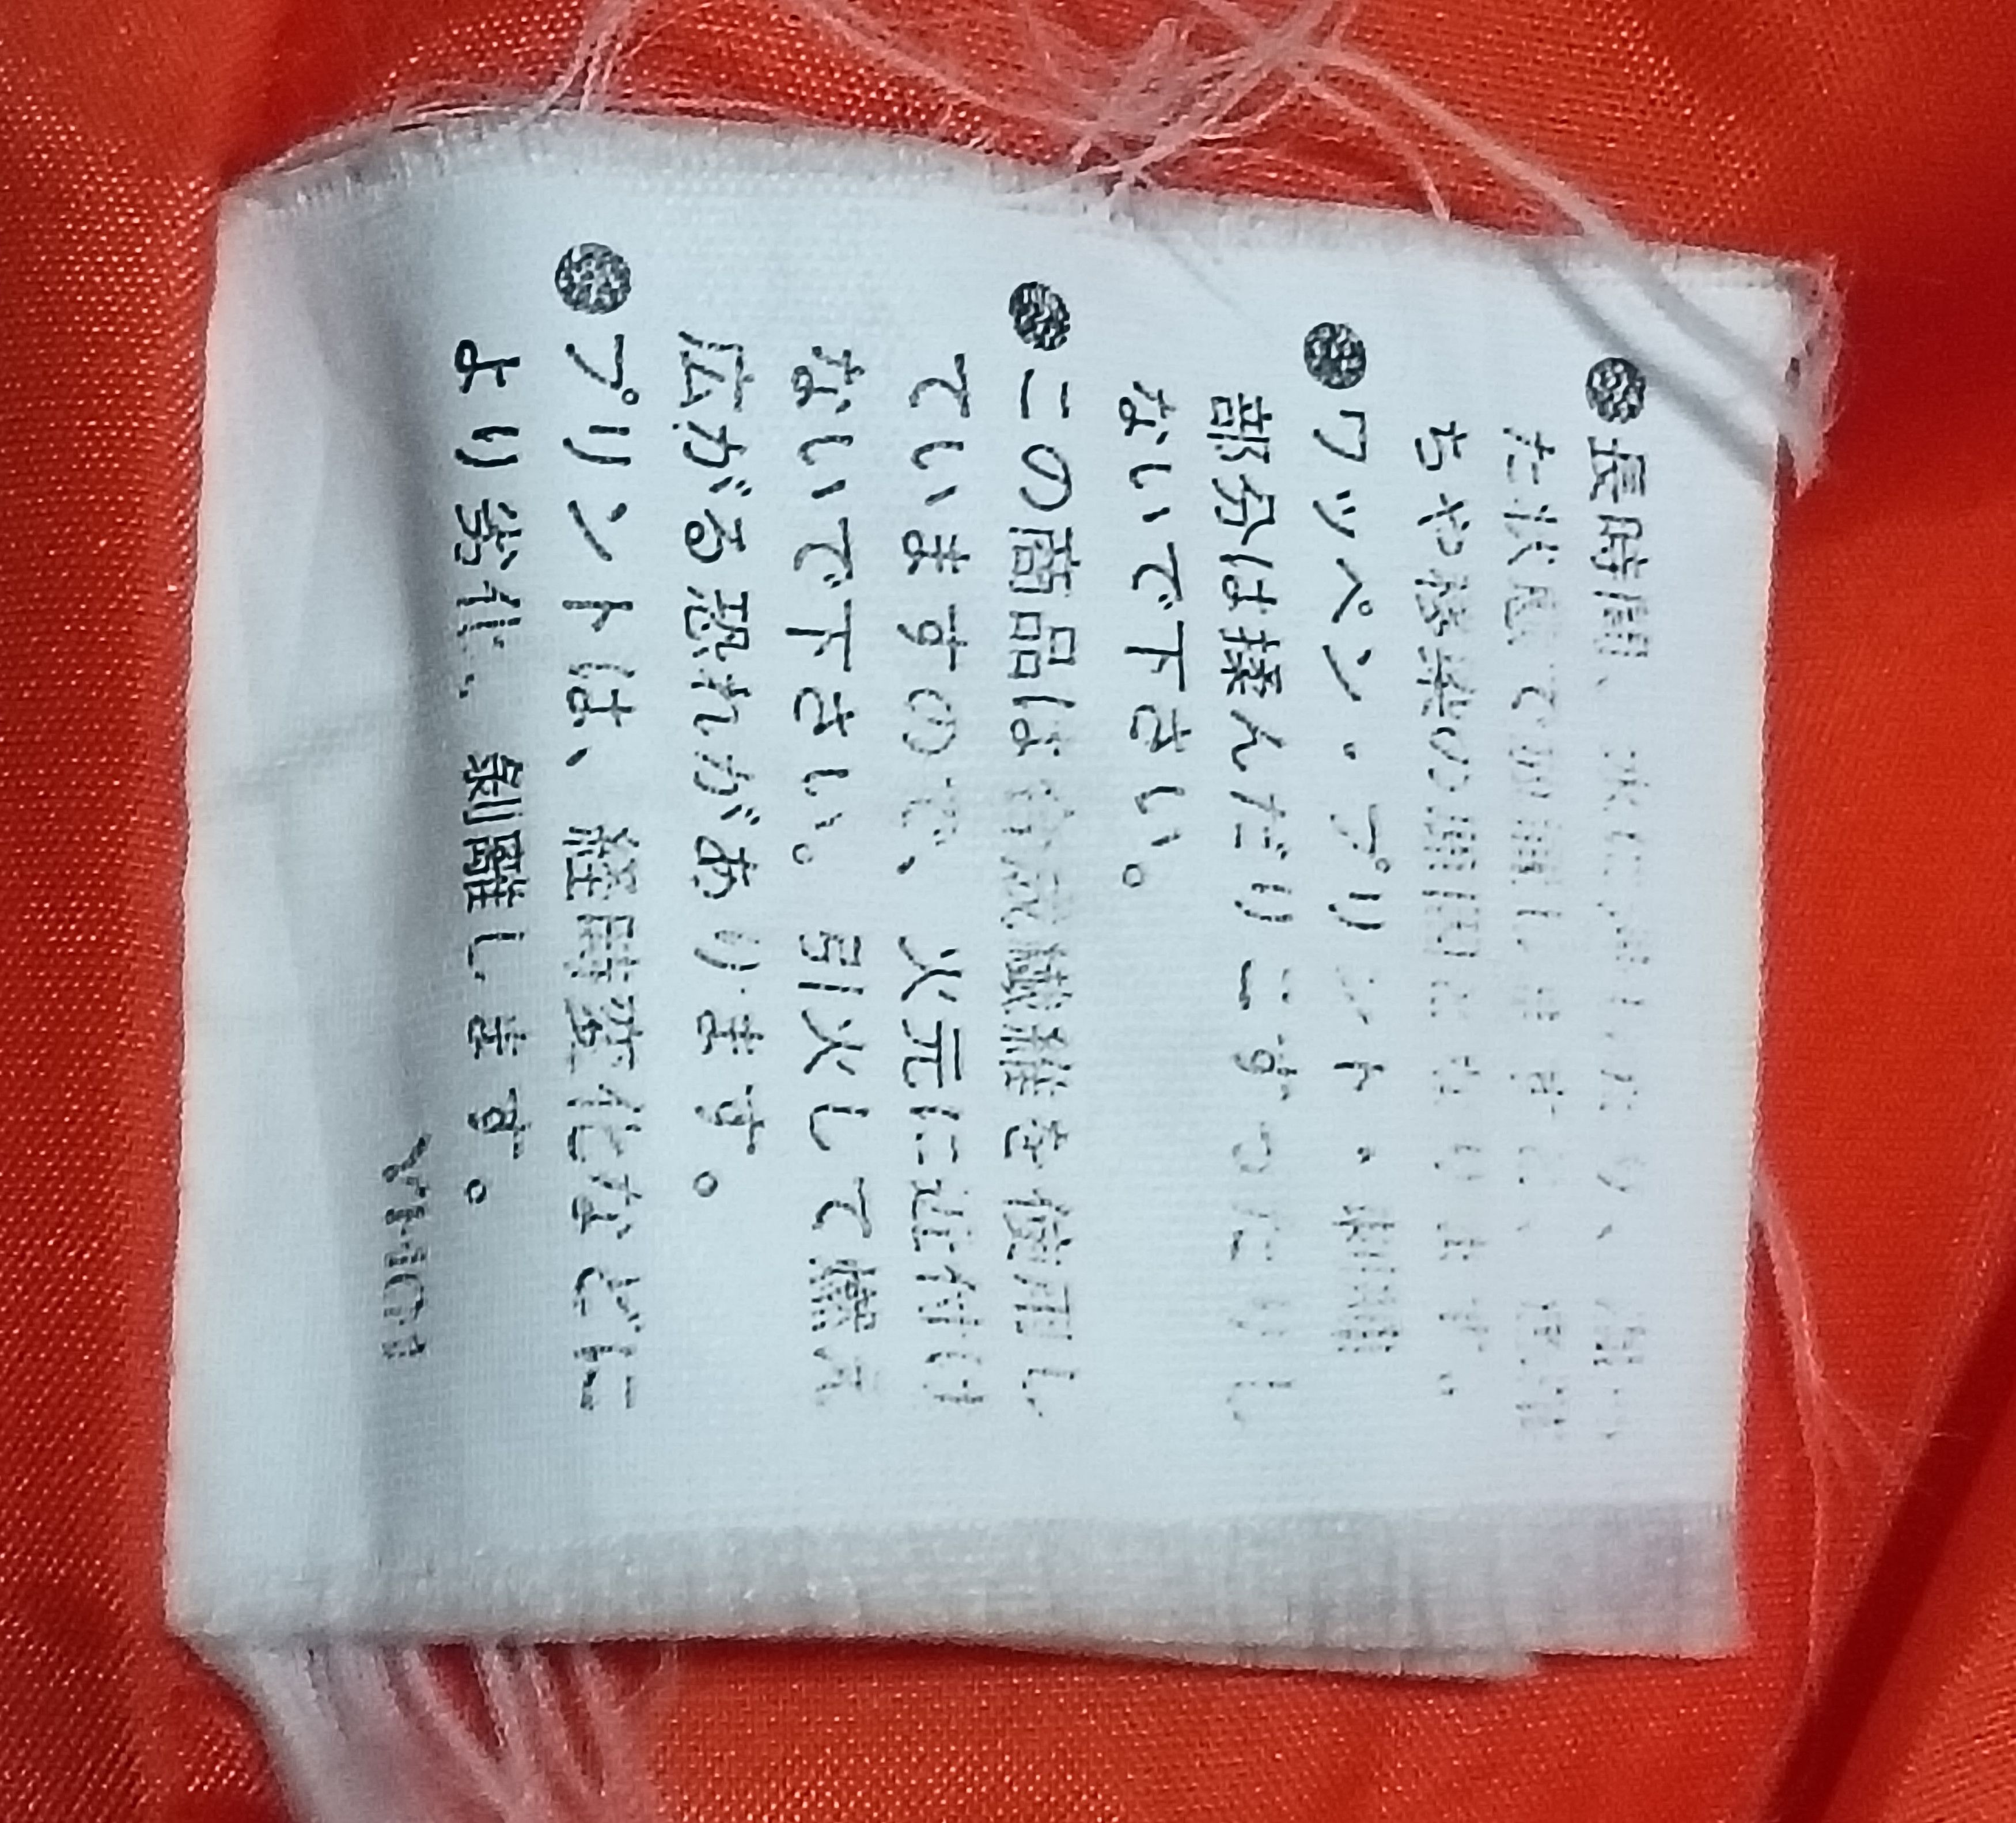 ●長時間、水に
た状態で放置しますと、色落
ちや移染の原因となります。
●ワッペン・プリント・刺繍
部分は揉んだりこすったりし
ないで下さい。
●この商品は合成繊維を使用し
ていますので、火元に近付け
ないで下さい。引火して燃え
広がる恐れがあります。
●プリントは、経時変化などに
より劣化、剥離します。